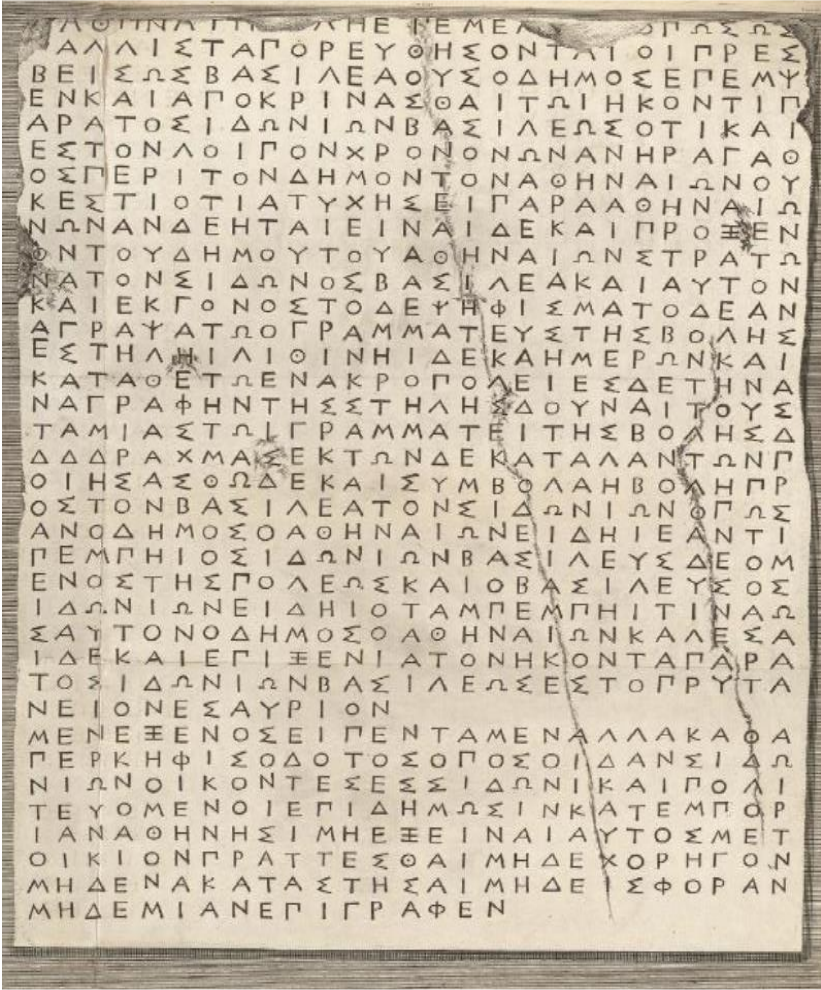 ΟΠΩΣΩΣ
ΑΛΛΙΣΤΑΠΟΡΕΥΘΗΣΟΝΤΑΙΟΙΠΡΕΣ
ΒΕΙΣΩΣΒΑΣΙΛΕΑΟΥΣΟΔΗΜΟΣΕΠΕΜΨ
ΕΝΚΑΙΑΠΟΚΡΙΝΑΣΘΑΙΤΩΙΗΚΟΝΤΙΠ
ΑΡΑΤΟΣΙΔΩΝΙΩΝΒΑΣΙΛΕΩΣΟΤΙΚΑΙ
ΕΣΤΟΝΛΟΙΠΟΝΧΡΟΝΟΝΩΝΑΝΗΡΑΓΑΘ
ΟΣΠΕΡΙΤΟΝΔΗΜΟΝΤΟΝΑΘΗΝΑΙΩΝΟΥ
ΚΕΣΤΙΟΤΙΑΤΥΧΗΣΕΙΠΑΡΑΑΘΗΝΑΙΩ
ΝΩΝΑΝΔΕΗΤΑΙΕΙΝΑΙΔΕΚΑΙΠΡΟΞΕΝ
ΟΝΤΟΥΔΗΜΟΥΤΟΥΑΘΗΝΑΙΩΝΣΤΡΑΤΩ
ΝΑΤΟΝΣΙΔΩΝΟΣΒΑΣΙΛΕΑΚΑΙΑΥΤΟΝ
ΚΑΙΕΚΓΟΝΟΣΤΟΔΕΨΗΦΙΣΜΑΤΟΔΕΑΝ
ΑΓΡΑΨΑΤΩΟΓΡΑΜΜΑΤΕΥΣΤΗΣΒΟΛΗΣ
ΕΣΤΗΛΗΙΛΙΘΙΝΗΙΔΕΚΑΗΜΕΡΩΝΚΑΙ
ΚΑΤΑΘΕΤΩΕΝΑΚΡΟΠΟΛΕΙΕΣΔΕΤΗΝΑ
ΝΑΓΡΑΦΗΝΤΗΣΣΤΗΛΗΣΔΟΥΝΑΙΤΟΥΣ
ΤΑΜΙΑΣΤΩΙΓΡΑΜΜΑΤΕΙΤΗΣΒΟΛΗΣΔ
ΔΔΔΡΑΧΜΑΣΕΚΤΩΝΔΕΚΑΤΑΛΑΝΤΩΝΠ
ΟΙΗΣΑΣΘΩΔΕΚΑΙΣΥΜΒΟΛΑΗΒΟΛΗΠΡ
ΟΣΤΟΝΒΑΣΙΛΕΑΤΟΝΣΙΔΩΝΙΩΝΟΠΩΣ
ΑΝΟΔΗΜΟΣΟΑΘΗΝΑΙΩΝΕΙΔΗΙΕΑΝΤΙ
ΠΕΜΠΗΙΟΣΙΔΩΝΙΩΝΒΑΣΙΛΕΥΣΔΕΟΜ
ΕΝΟΣΤΗΣΠΟΛΕΩΣΚΑΙΟΒΑΣΙΛΕΥΣΟΣ
ΙΔΩΝΙΩΝΕΙΔΗΙΟΤΑΜΠΕΜΠΗΙΤΙΝΑΩ
ΣΑΥΤΟΝΟΔΗΜΟΣΟΑΘΗΝΑΙΩΝΚΑΛΕΣΑ
ΙΔΕΚΑΙΕΠΙΞΕΝΙΑΤΟΝΗΚΟΝΤΑΠΑΡΑ
ΤΟΣΙΔΩΝΙΩΝΒΑΣΙΛΕΩΣΕΣΤΟΠΡΥΤΑ
ΝΕΙΟΝΕΣΑΥΡΙΟΝ
ΜΕΝΕΞΕΝΟΣΕΙΠΕΝΤΑΜΕΝΑΛΛΑΚΑΘΑ
ΠΕΡΚΗΦΙΣΟΔΟΤΟΣΟΠΟΣΟΙΔΑΝΣΙΔΩ
ΝΙΩΝΟΙΚΟΝΤΕΣΕΣΣΙΔΩΝΙΚΑΙΠΟΛΙ
ΤΕΥΟΜΕΝΟΙΕΠΙΔΗΜΩΣΙΝΚΑΤΕΜΠΟΡ
ΙΑΝΑΘΗΝΗΣΙΜΗΕΞΕΙΝΑΙΑΥΤΟΣΜΕΤ
ΟΙΚΙΟΝΠΡΑΤΤΕΣΘΑΙΜΗΔΕΧΟΡΗΓΟΝ
ΜΗΔΕΝΑΚΑΤΑΣΤΗΣΑΙΜΗΔΕΙΣΦΟΡΑΝ
ΜΗΔΕΜΙΑΝΕΠΙΓΡΑΦΕΝ